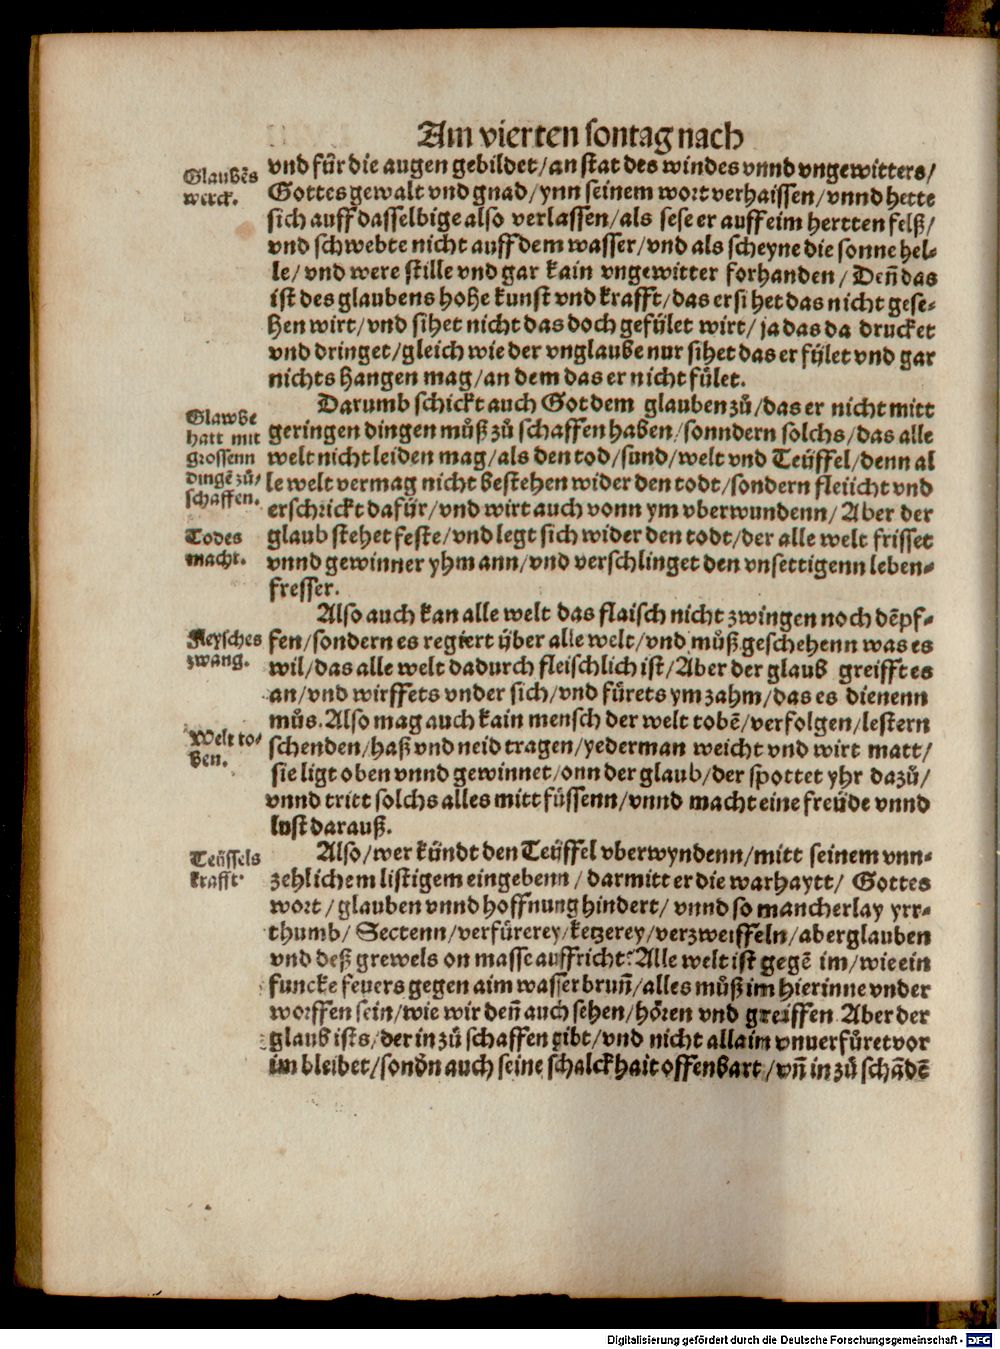 Am vierten sontag nach
vnd für die augen gebildet/an stat des windes vnnd vngewitters/
Glaubēs
werck.
Gottes gewalt vnd gnad/ynn seinem wort verhaissen/vnnd hette
sich auff dasselbige also verlassen/als sese er auff eim hertten felß/
vnd schwebte nicht auff dem wasser/vnd als scheyne die sonne hel-
le/vnd were stille vnd gar kain vngewitter forhanden/Deñ das
ist des glaubens hohe kunst vnd krafft/das er sihet das nicht gese-
hen wirt/vnd sihet nicht das doch gefület wirt/ja das da drucket
vnd dringet/gleich wie der vnglaube nur sihet das er fylet vnd gar
nichts hangen mag/an dem das er nicht fület.
Darumb schickt auch Got dem glauben zů/das er nicht mitt
Glawbe
hatt mit
grossenn
dingē zů/
schaffen.
geringen dingen můß zů schaffen haben/sonndern solchs/das alle
welt nicht leiden mag/als den tod/sund/welt vnd Teüffel/denn al
le welt vermag nicht bestehen wider den todt/sondern fleücht vnd
erschrickt dafür/vnd wirt auch vonn ym vberwundenn/Aber der
Todes
macht.
glaub stehet feste/vnd legt sich wider den todt/der alle welt frisset
vnnd gewinner yhm ann/vnd verschlinget den vnsettigenn leben-
fresser.
Also auch kan alle welt das flaisch nicht zwingen noch dēpf-
fleysches
zwang.
fen/sondern es regiert über alle welt/vnd můß geschehenn was es
wil/das alle welt dadurch fleischlich ist/Aber der glaub greifft es
an/vnd wirffets vnder sich/vnd fürets ym zahm/das es dienenn
můs. Also mag auch kain mensch der welt tobē/verfolgen/lestern
Welt to/
ben.
schenden/haß vnd neid tragen/yederman weicht vnd wirt matt/
sie ligt oben vnnd gewinnet/onn der glaub/der spottet yhr dazů/
vnnd tritt solchs alles mitt füssenn/vnnd macht eine freüde vnnd
lust darauß.
Also/wer kündt den Teüffel vberwyndenn/mitt seinem vnn-
Teüffels
krafft.
zehlichem listigem eingebenn/darmitt er die warhaytt/Gottes
wort/glauben vnnd hoffnung hindert/vnnd so mancherlay yrr-
thumb/Sectenn/verfürerey/ketzerey/verzweiffeln/aberglauben
vnd deß grewels on masse auffricht? Alle welt ist gegē im/wie ein
funcke feuers gegen aim wasserbruñ/alles můß im hierinne vnder
worffen sein/wie wir deñ auch sehen/hören vnd greiffen Aber der
glaub ists/der in zů schaffen gibt/vnd nicht allain vnuerfüret vor
im bleibet/sonðn auch seine schalckhait offenbart/vñ in zů schādē
Digitalisierung gefördert durch die Deutsche Forschungsgemeinschaft - DFG